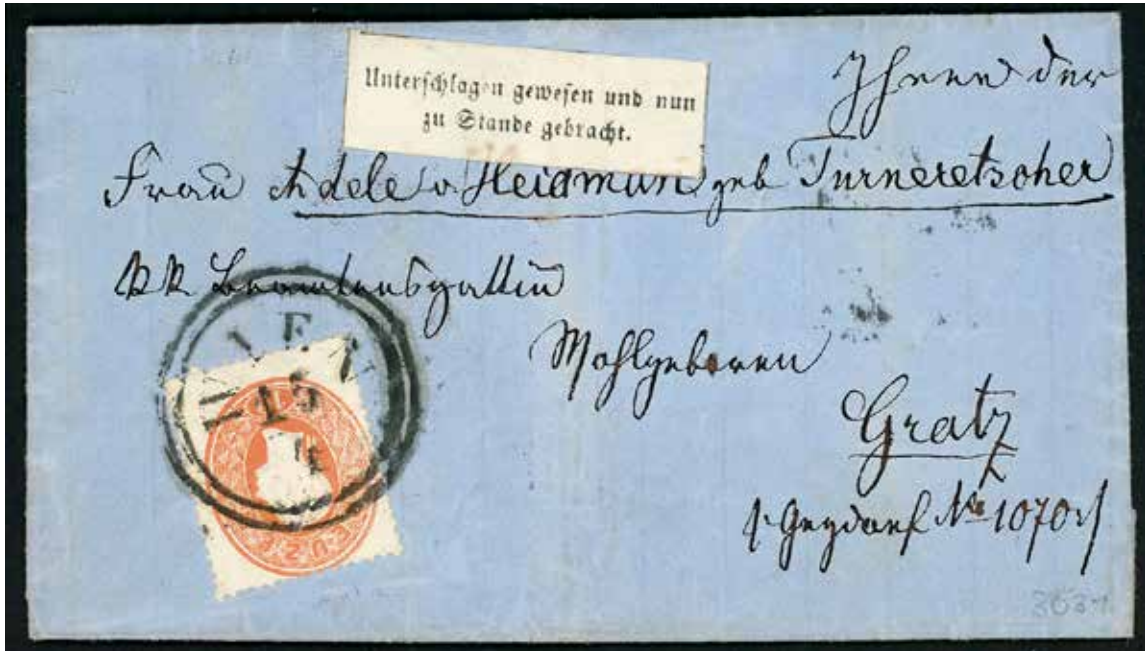 Unterschlagen gewesen und nun
zu Stande gebracht.
Ihrer der
Frau Adele v Heidmun geb Turneretscher
kk Beamtensgattin
Wohlgeboren
Gratz
Geydorf No 1070
WIEN
15
4
3631